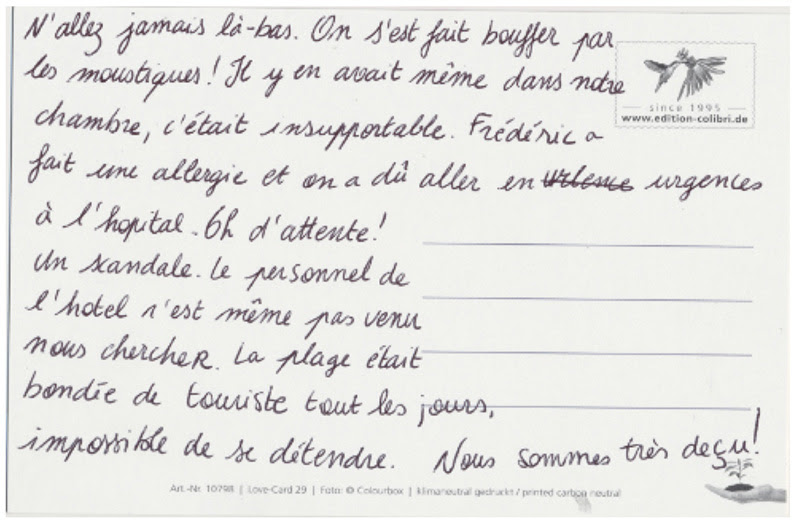 N'allez jamais là-bas. On s'est fait bouffer par
les moustiques! Il y en avait même dans notre
since 1995
www.edition-colibri.de
chambre, c'était insupportable. Frédéric a
fait une allergie et on a dû aller en urgences
à l'hopital. 6h d'attente!
Un scandale. Le personnel de
l'hotel n'est même pas venu
nous chercher. La plage était
bondée de touriste tout les jours,
impossible de se détendre. Nous sommes très deçu!
Art.-Nr. 10798 | Love-Card 29 | Foto: © Colourbox | klimaneutral gedruckt / printed carbon neutral